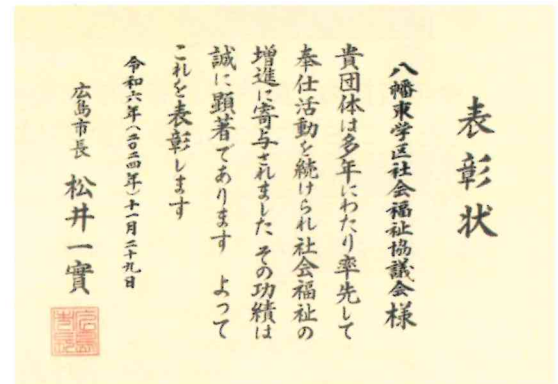 表彰状
八幡東学区社会福祉協議会様
貴団体は多年にわたり率先して
奉仕活動を続けられ社会福祉の
増進に寄与されました その功績は
誠に顕著であります よって
これを表彰します
令和六年(二〇二四年)十一月二十九日
広島市長 松井一實